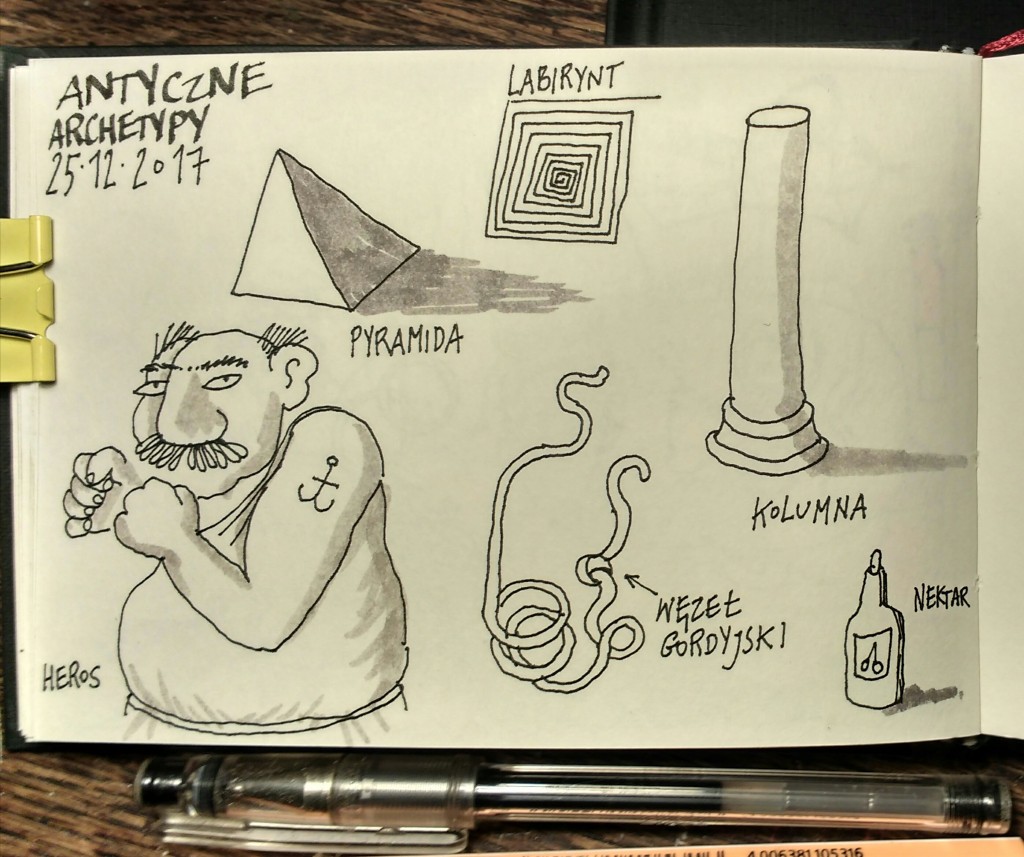 ANTYCZNE
ARCHETYPY
25.12.2017
LABIRYNT
PYRAMIDA
KOLUMNA
WĘZEŁ
GORDYJSKI
NEKTAR
HEROS
4 006381105316